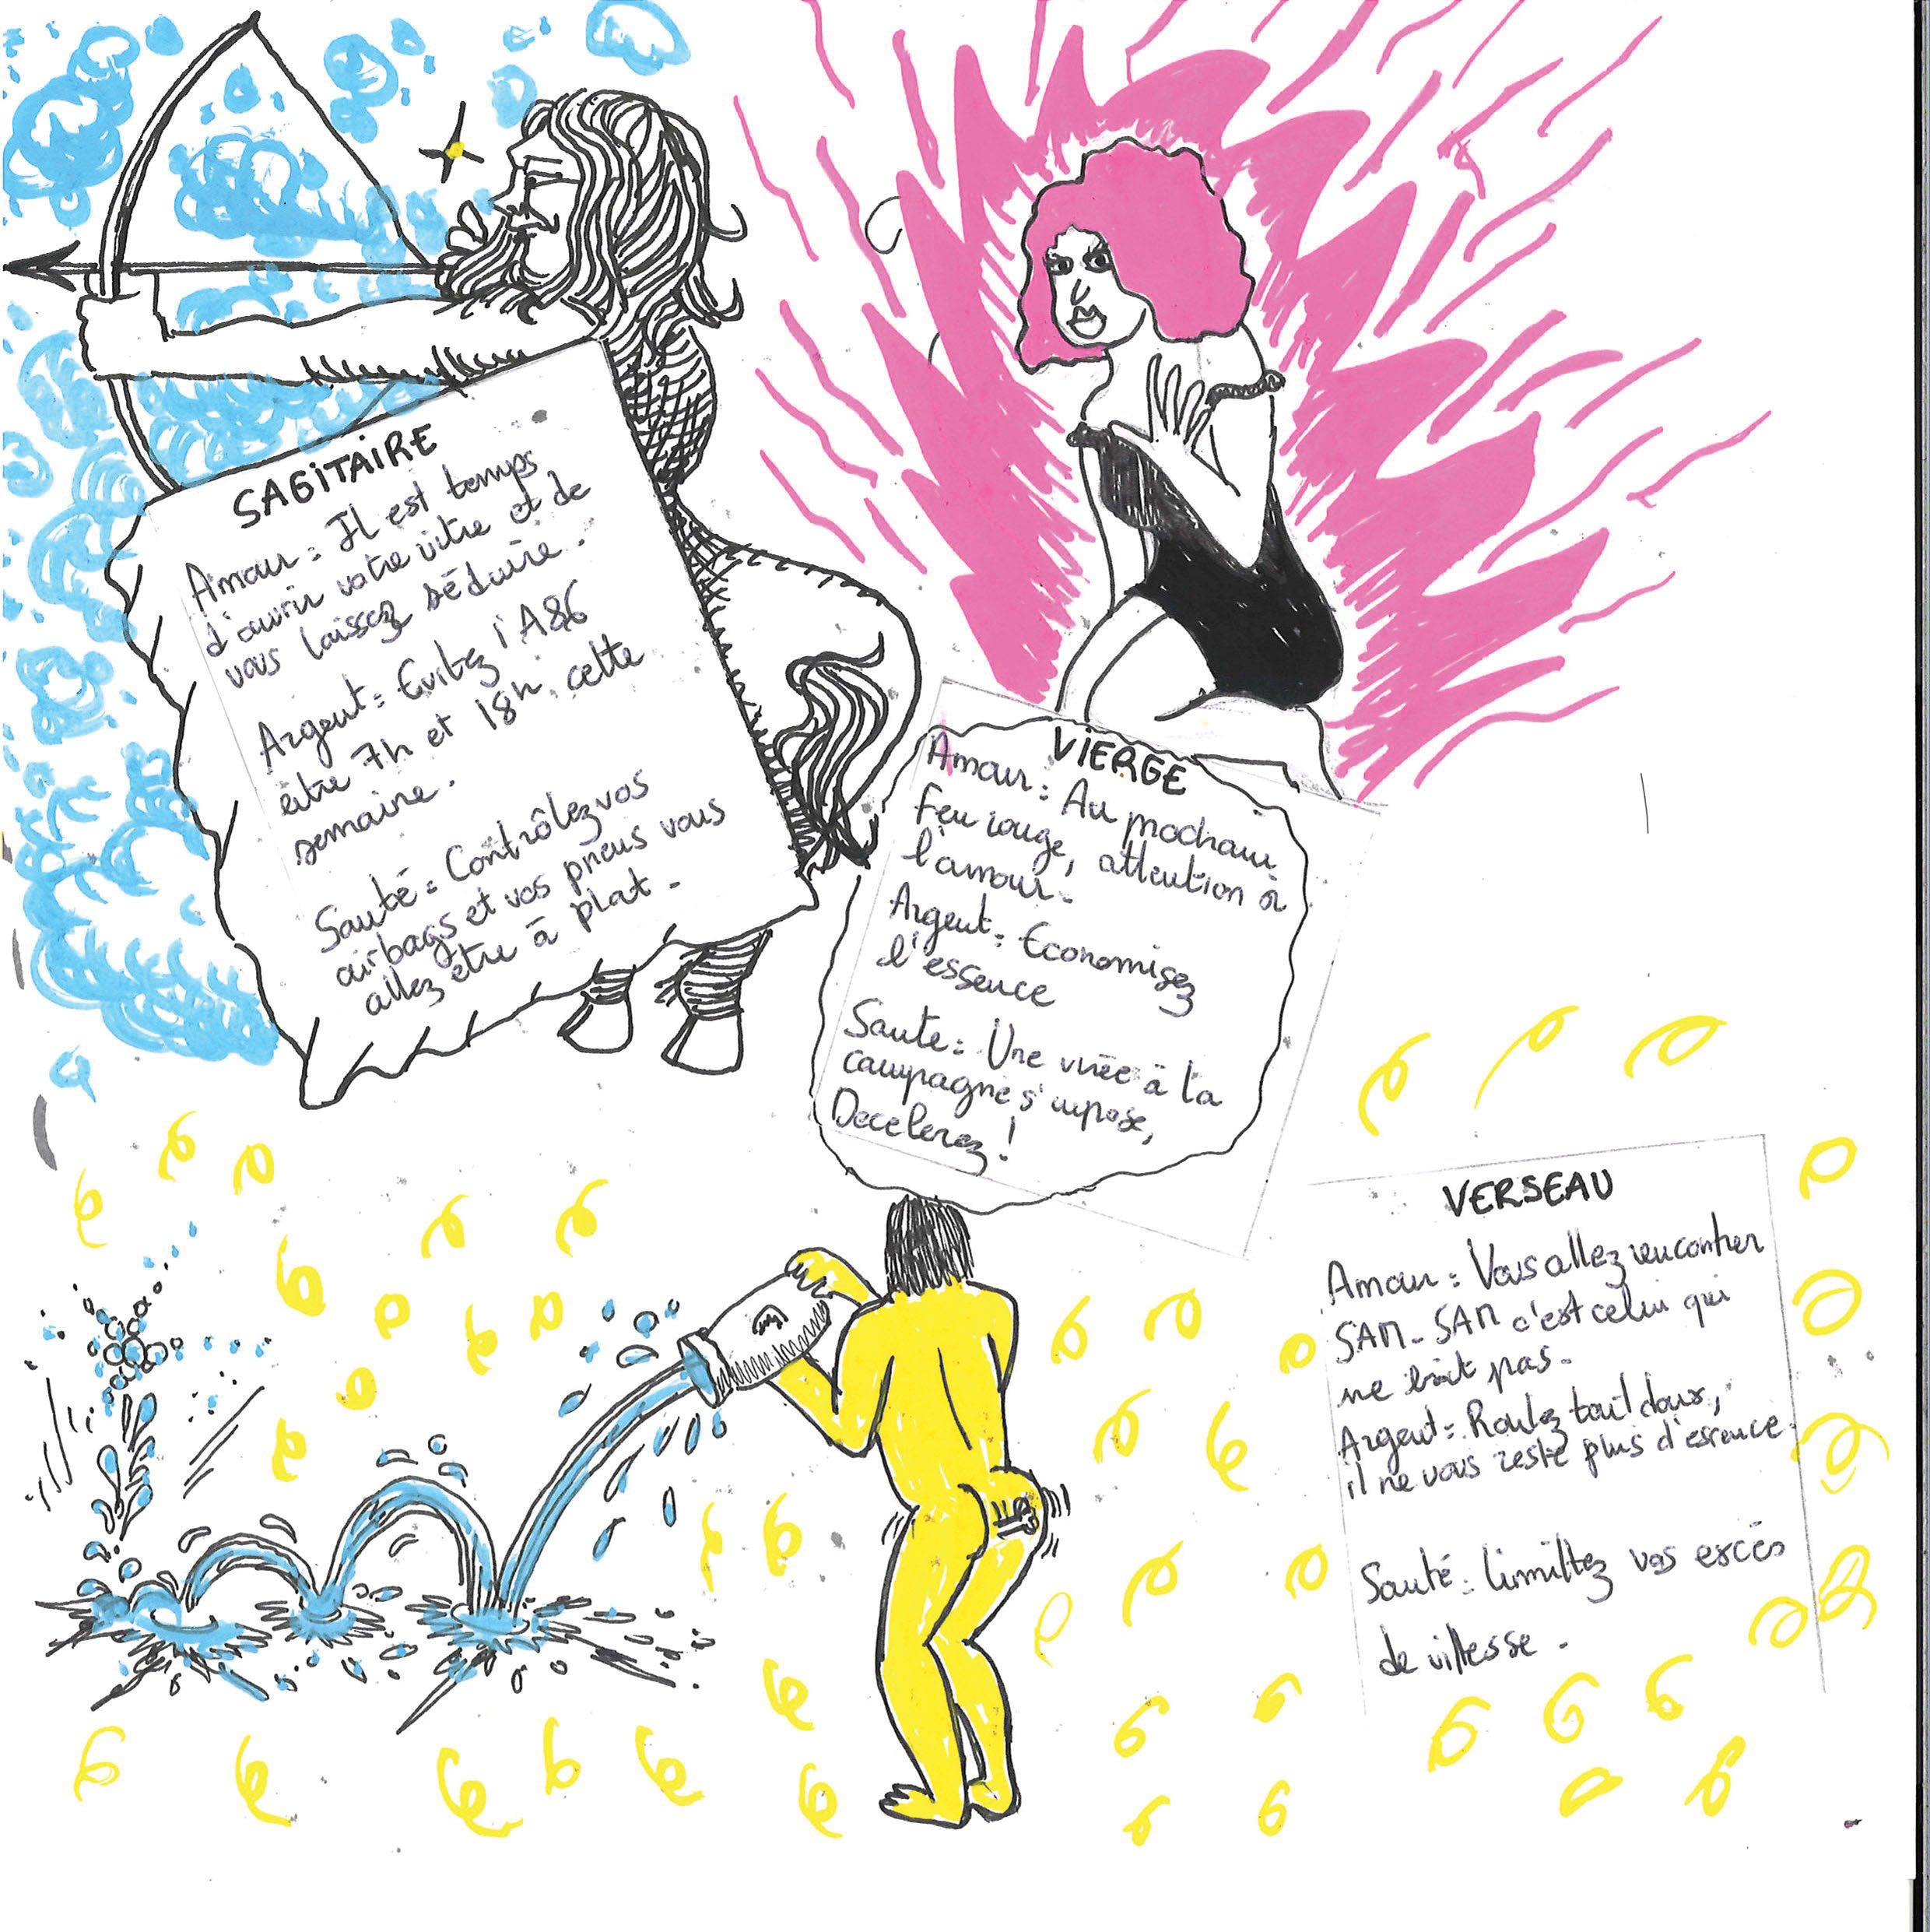 SAGITAIRE
Amour : Il est temps
d'ouvrir votre vitre et de
vous laissez séduire.
Argent : Evitez l'A86
entre 7h et 18h cette
semaine.
Santé : Contrôlez vos
airbags et vos pneus vous
allez être à plat.
VIERGE
Amour : Au prochain
Feu rouge, attention à
l'amour.
Argent : Economisez
l'essence
Sante : Une virée à la
campagne s'impose,
Decelerez !
VERSEAU
Amour : Vous allez rencontrer
SAM. SAM c'est celui qui
ne boit pas.
Argent : Roulez tout doux,
il ne vous reste plus d'essence.
Santé : limiltez vos excés
de vitesse.